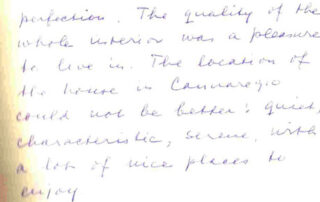 perfection. The quality of the
whole interior was a pleasure
to live in. The location of
the house in Cannaregio
could not be better: quiet,
characteristic, serene. With
a lot of nice places to
enjoy